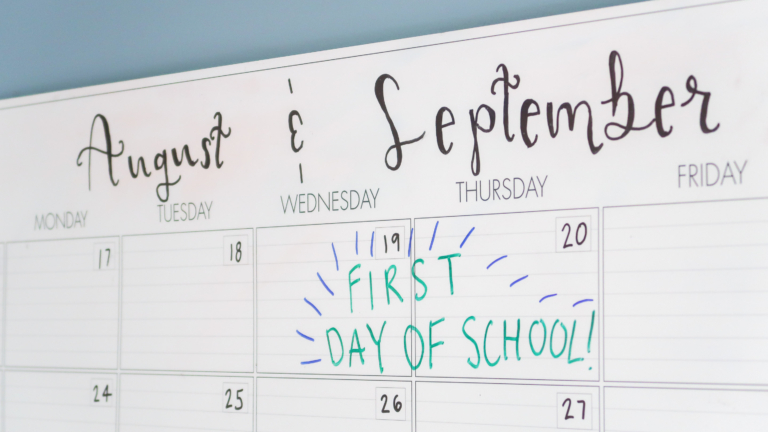 August & September
MONDAY TUESDAY WEDNESDAY THURSDAY FRIDAY
17 18 19 20
FIRST
DAY OF SCHOOL!
24 25 26 27